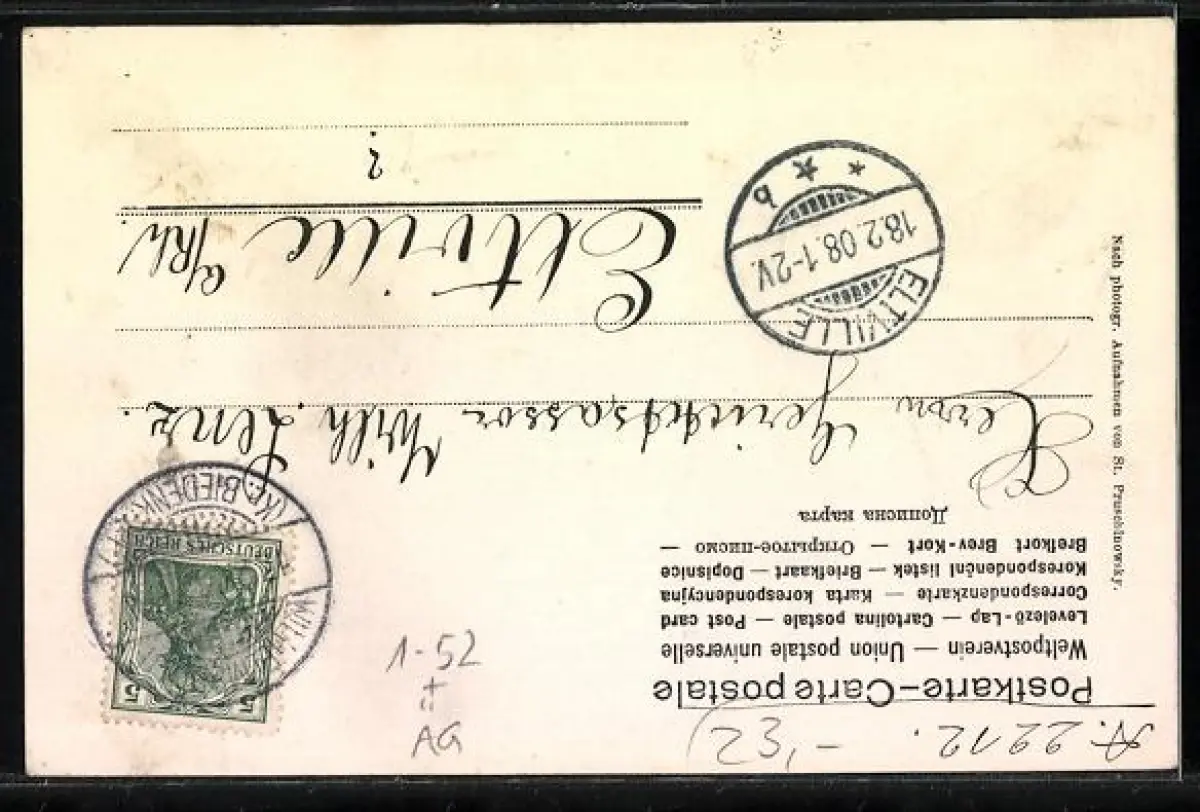 A. 2212.
Postkarte – Carte postale
Weltpostverein — Union postale universelle
Levelező-Lap — Cartolina postale — Post card
Correspondenzkarte — Karta korespondencyjna
Korespondenční lístek — Briefkaart — Dopisnice
Brefkort Brev-Kort — Открытое-письмо —
Дописна карта
Herrn Gerichtsassor Wilh. Lenz
Eltville a/Rh.
2
ELTVILLE
18.2.08.1-2V.
* ★ b
Nach photogr. Aufnahmen von St. Pruschinowsky.
(KR. BIEDENK
DEUTSCHES REICH
5 5
1-52
AG